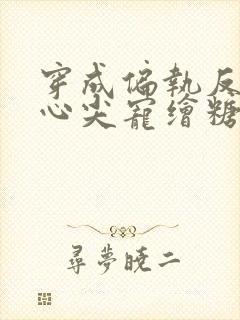 穿成偏執反
心尖寵繪糖
尋夢曉二